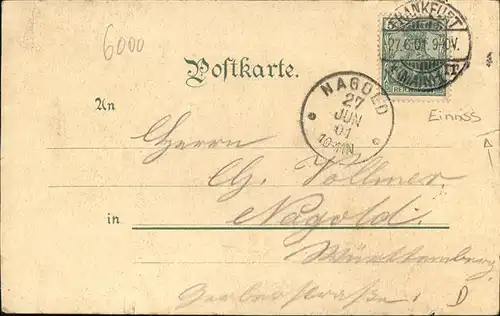 6000
FRANKFURT
27.6.01. 9-10V.
(MAIN) 1.
Postkarte.
NAGOLD
27
JUN
01
Einriss
An
Herrn
Ch. Vollmer.
in Nagold.
Württemberg.
Gerberstraße.
D